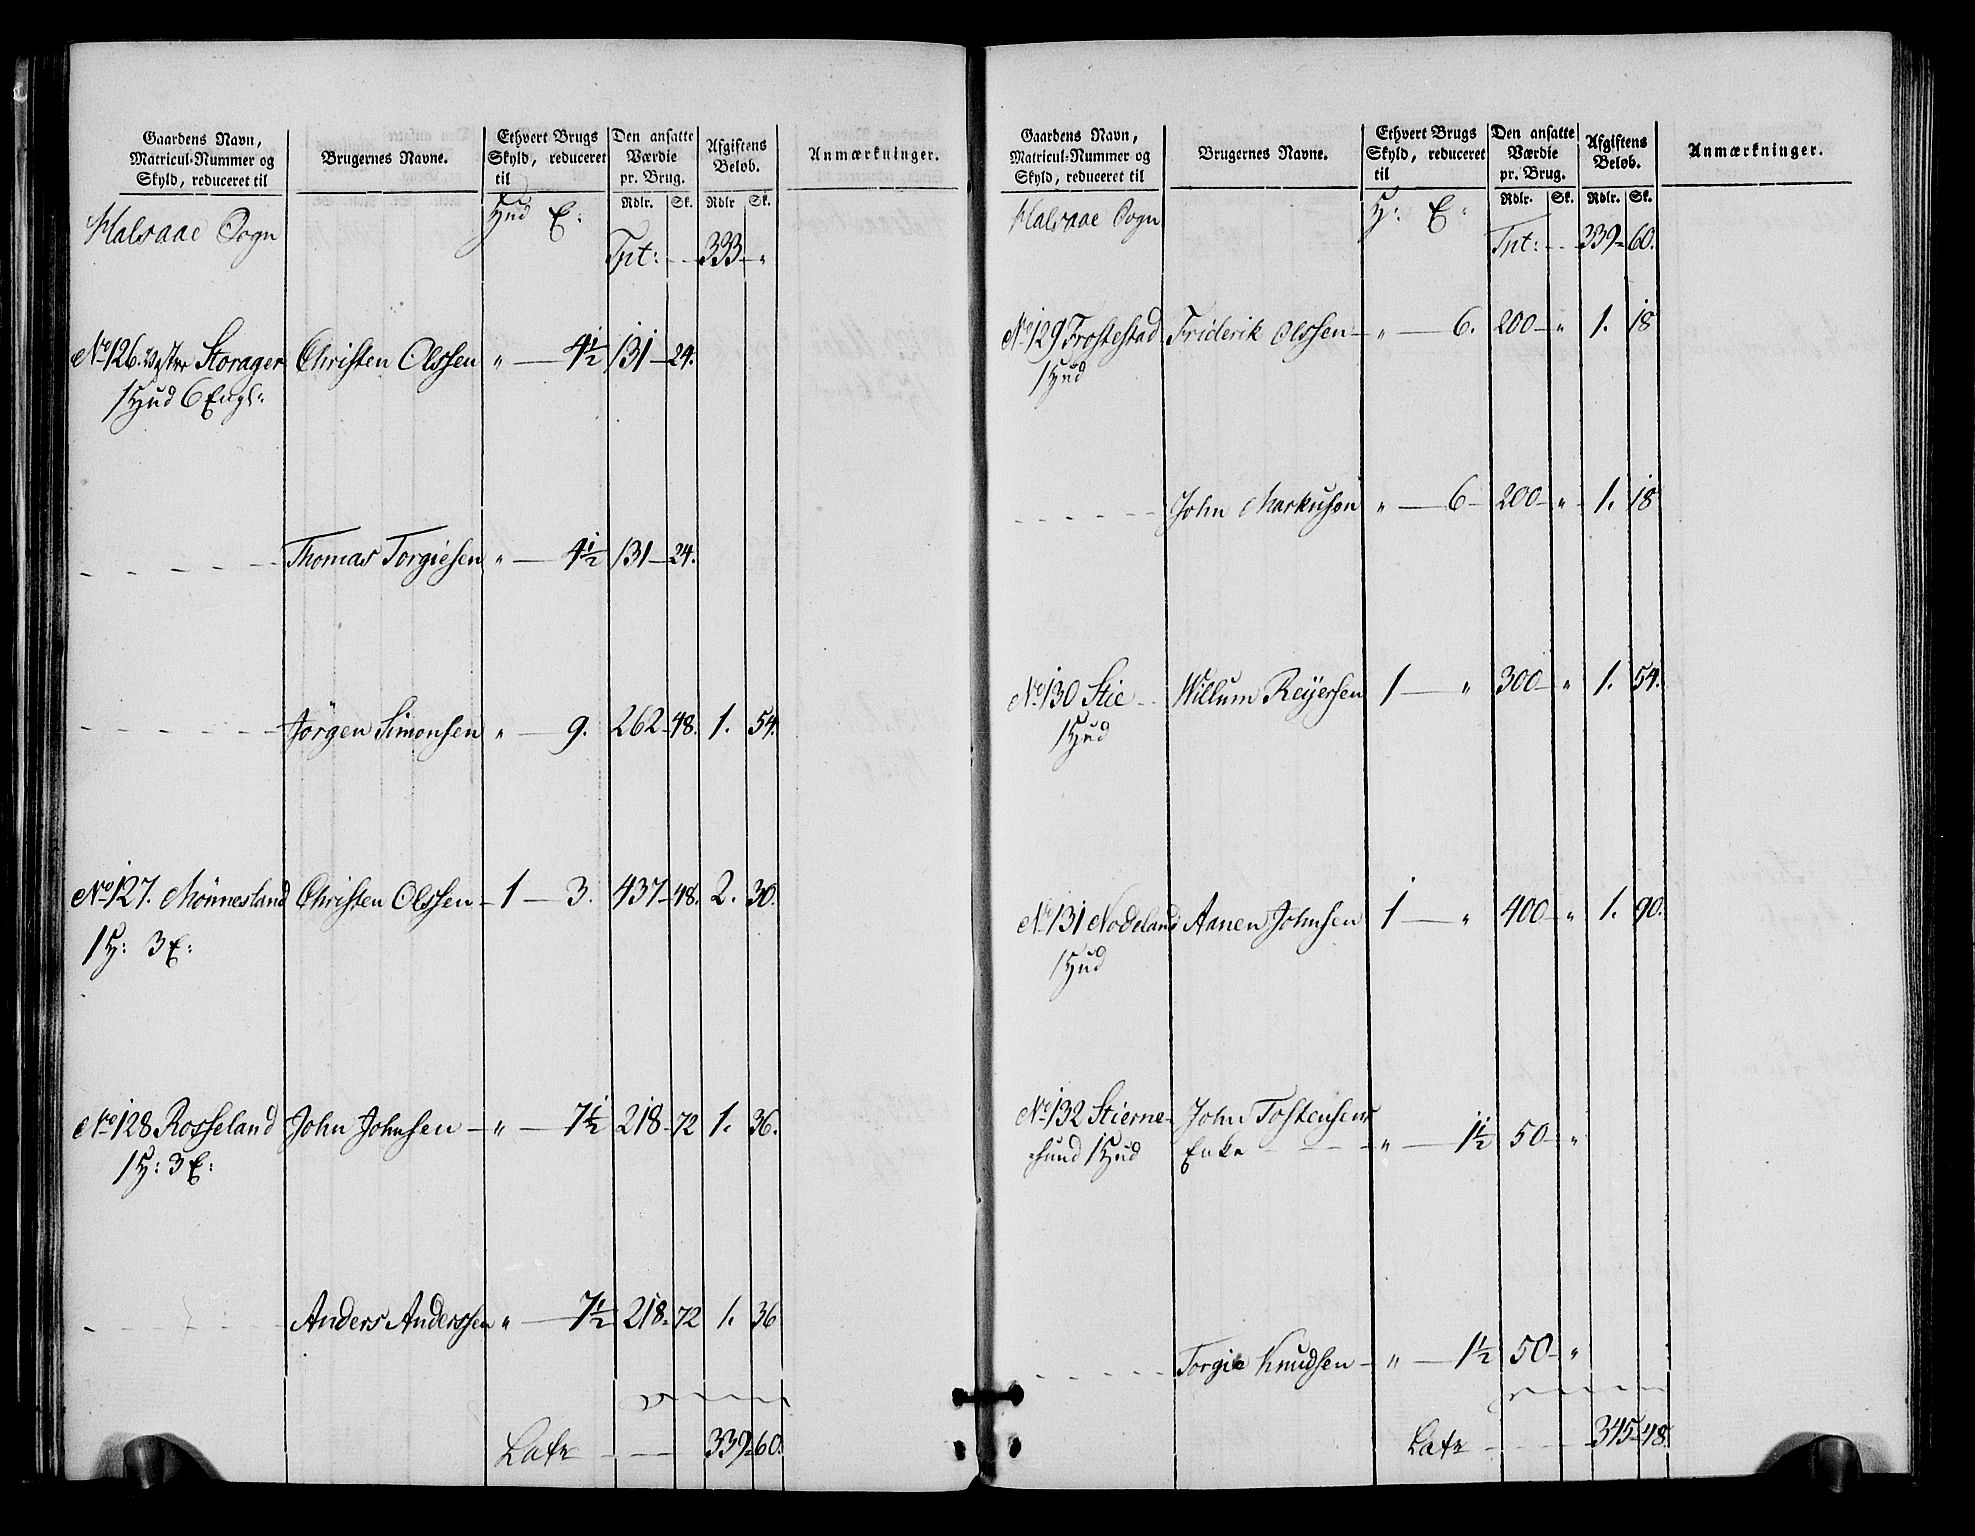 Gaardens Navn, Matricul-Nummer og Skyld, reduceret til | Brugernes Navne. | Ethvert Brugs Skyld, reduceret til | Den ansatte Værdie pr. Brug. Rdlr. Sk. | Afgiftens Beløb. Rdlr Sk. | Anmærkninger.
Halsaae Sogn Hud E:
Tpt: - - 333 - "
No 126. Vestre Storager Christen Olssen " — 4½ 131 — 24.
1 Hud 6 Engl:
- - - - - - Thomas Torgiesen " — 4½ 131 — 24.
- - - - - - Jørgen Simonsen " — 9. 262 - 48. 1. 54.
No 127. Mønnesland Christen Olssen - 1 — 3. 437 - 48. 2. 30.
1 H: 3 E:
No 128 Rosseland John Johnsen - " — 7½ 218 - 72 1. 36.
1 H: 3 E:
- - - - - - Anders Anderssen " — 7½ 218 - 72 1. 36
Latr - - - 339 - 60.
Gaardens Navn, Matricul-Nummer og Skyld, reduceret til | Brugernes Navne. | Ethvert Brugs Skyld, reduceret til | Den ansatte Værdie pr. Brug. Rdlr. Sk. | Afgiftens Beløb. Rdlr. Sk. | Anmærkninger.
Halsaae Sogn H: E:
Tpt: - - 339 - 60.
No 129 Frostestad Friderik Olssen - " — 6. 200 - " 1. 18
1 Hud
- - - - - John Markusøn " — 6 - 200 - " - 1. 18
No 130 Stie - - Willum Reyersen 1 — " 300 - " 1. 54.
1 Hud
No 131 Nodeland Aanen Johnsen 1 — " 400 - " 1. 90.
1 Hud
No 132 Stierne- John Tostensens
sund 1 Hud Enke - - - " — 1½ 50 - "
- - - - - Torgie Knudsen - " — 1½ 50 - "
Latr - - - 345 - 48.